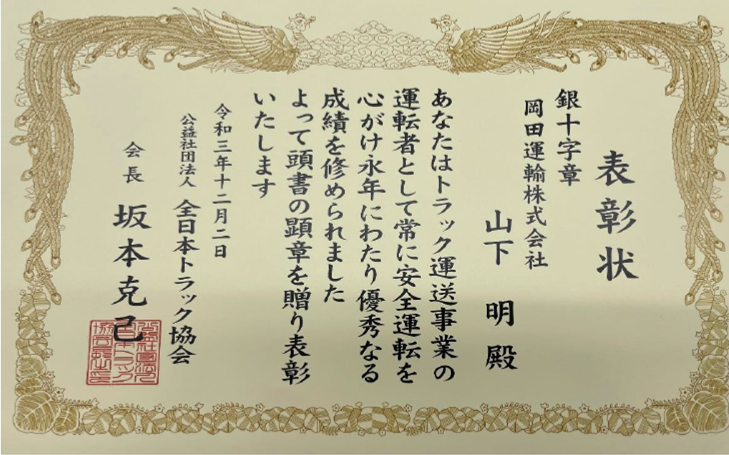 表彰状
銀十字章
岡田運輸株式会社
山下 明 殿
あなたはトラック運送事業の
運転者として常に安全運転を
心がけ永年にわたり優秀なる
成績を修められました
よって頭書の顕章を贈り表彰
いたします
令和三年十二月二日
公益社団法人 全日本トラック協会
会長 坂本克己